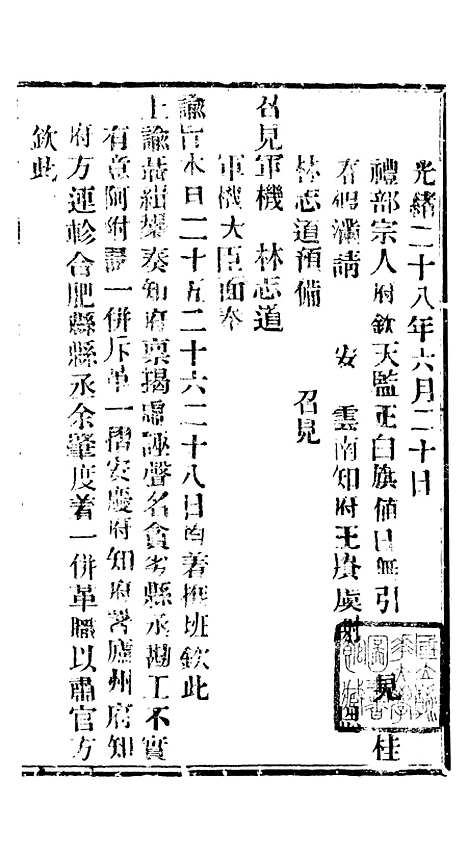 光緒二十八年六月二十日
禮部宗人府欽天監正白旗值日無引 見 桂
春 請 安 雲南知府王 虞 謝 恩
林志道預備 召見
召見軍機 林志道
軍機大臣面奉
諭旨本日二十五二十六二十八日均著推班欽此
上諭 緝槼奏知府稟揭虛誣聲名貪劣縣丞勘工不實
有意阿附請一併斥革一摺安慶府知府署廬州府知
府方連軫合肥縣縣丞余肇度着一併革職以肅官方
欽此